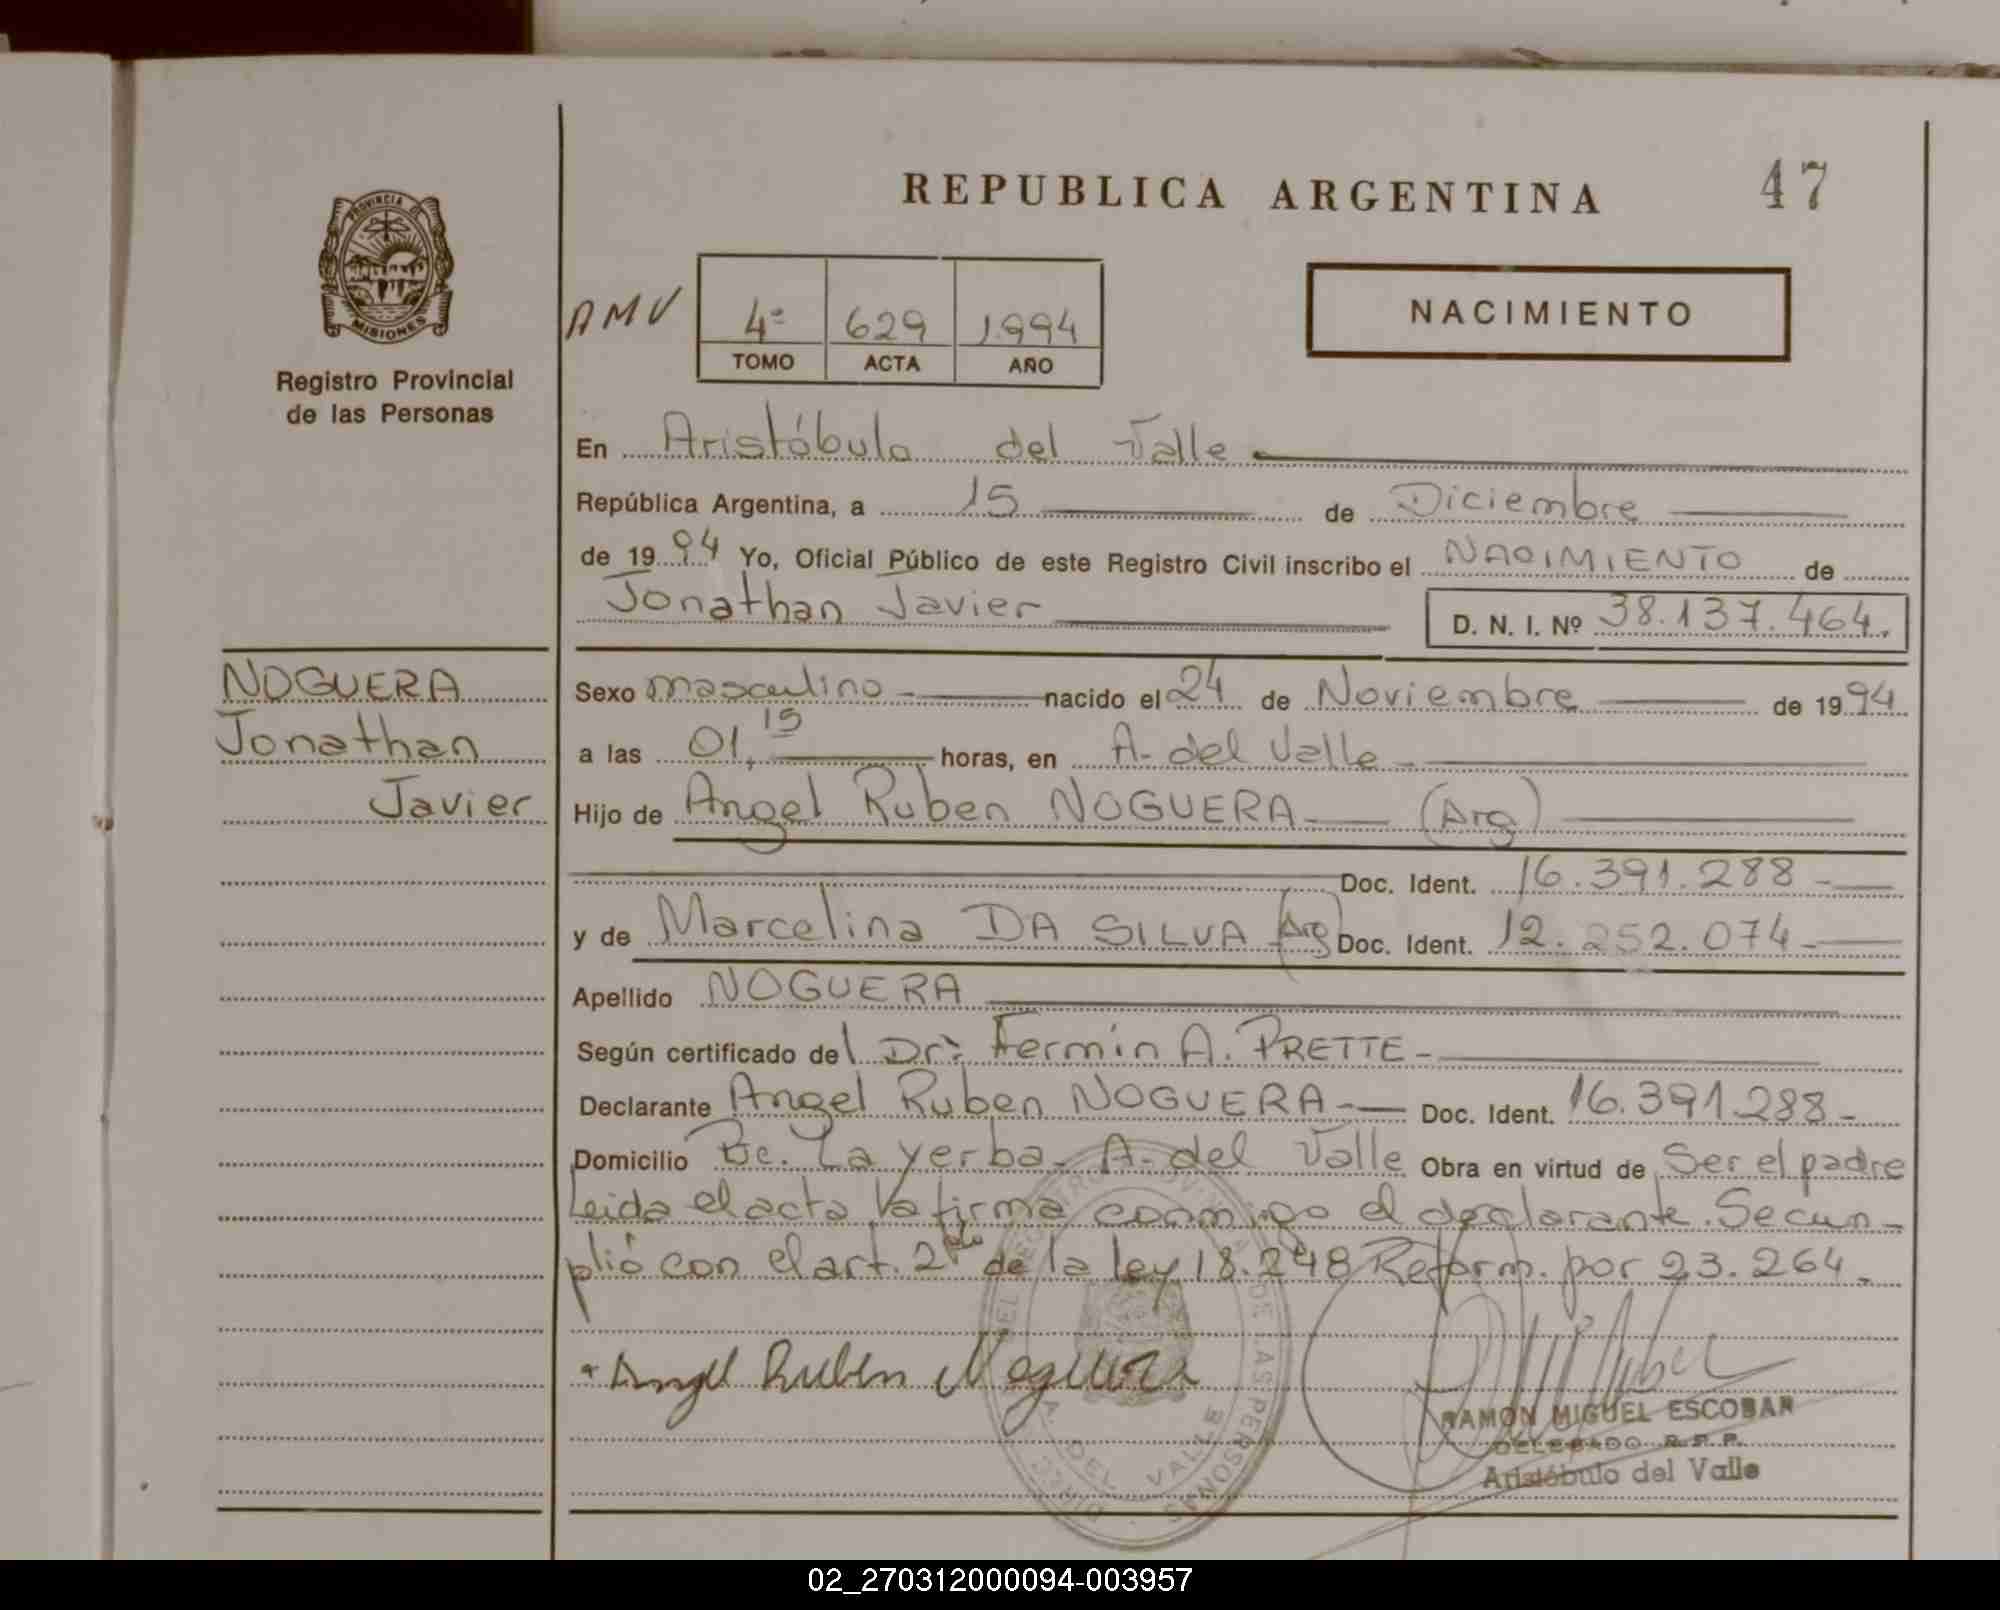 REPUBLICA ARGENTINA
47
PROVINCIA DE
MISIONES
Registro Provincial
de las Personas
AMV
4º 629 1.994
TOMO ACTA AÑO
NACIMIENTO
En Aristóbulo del Valle
República Argentina, a 15 de Diciembre
de 1994 Yo, Oficial Público de este Registro Civil inscribo el NACIMIENTO de
Jonathan Javier D. N. I. Nº 38.137.464.
NOGUERA
Jonathan
Javier
Sexo masculino - nacido el 24 de Noviembre de 1994
a las 01,15 horas, en A. del Valle
Hijo de Angel Ruben NOGUERA (Arg)
Doc. Ident. 16.391.288
y de Marcelina DA SILVA (Arg) Doc. Ident. 12.252.074
Apellido NOGUERA
Según certificado del Dr. Fermín A. PRETTE
Declarante Angel Ruben NOGUERA Doc. Ident. 16.391.288
Domicilio La Yerba - A. del Valle Obra en virtud de Ser el padre
Leida el acta la firma conmigo el declarante. Se cum-
plió con el art. 2do de la ley 18.248 Reform. por 23.264.
Angel Ruben Noguera
RAMON MIGUEL ESCOBAR
DELEGADO R. P. P.
Aristóbulo del Valle
A. DEL VALLE
DE LAS PERSONAS
02_270312000094-003957